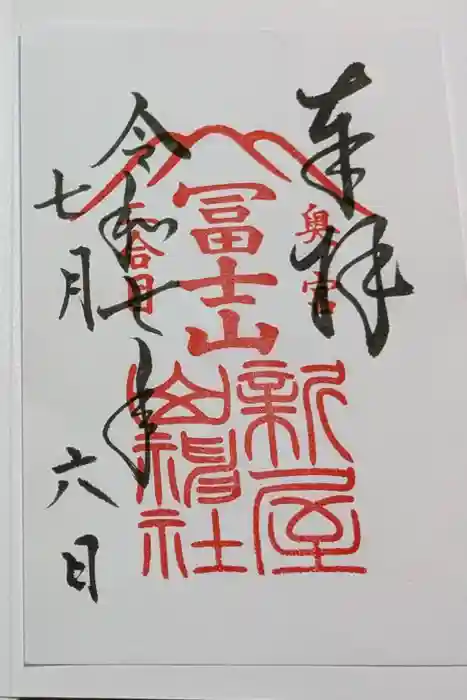 奉拝
奥宮
冨士山
新屋
山神社
二合目
令和七年
七月六日